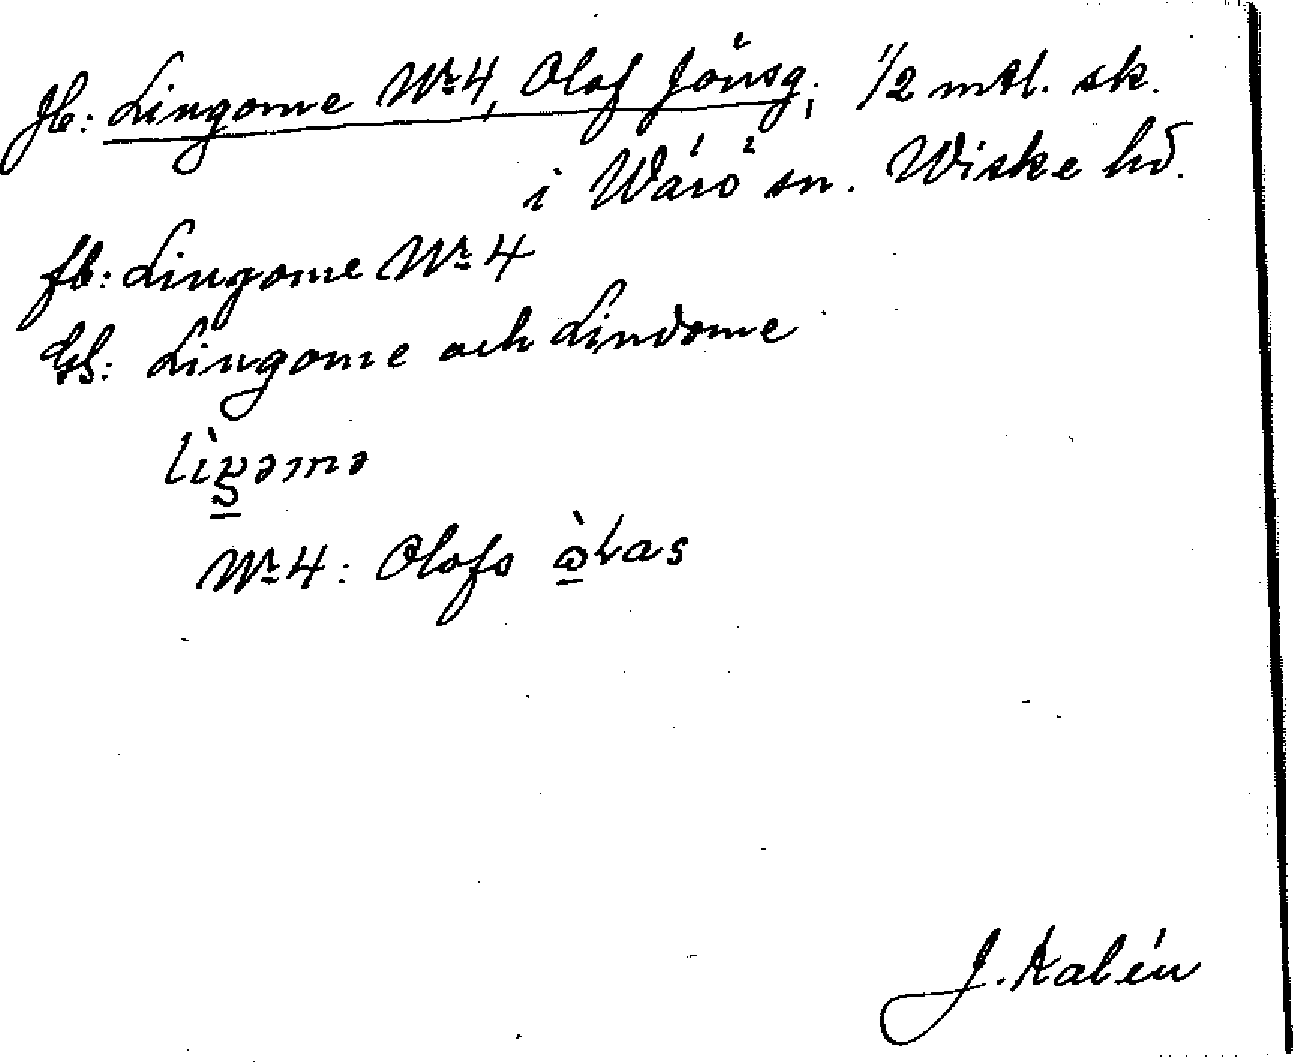 Jb: Lingome Nr 4, Olof Jönsg; 1/2 mtl. sk.
i Wärö sn. Wiske hd.
fb: Lingome Nr 4
Gs: Lingome och Lindome
Nr 4: Olofs
J. Kalén